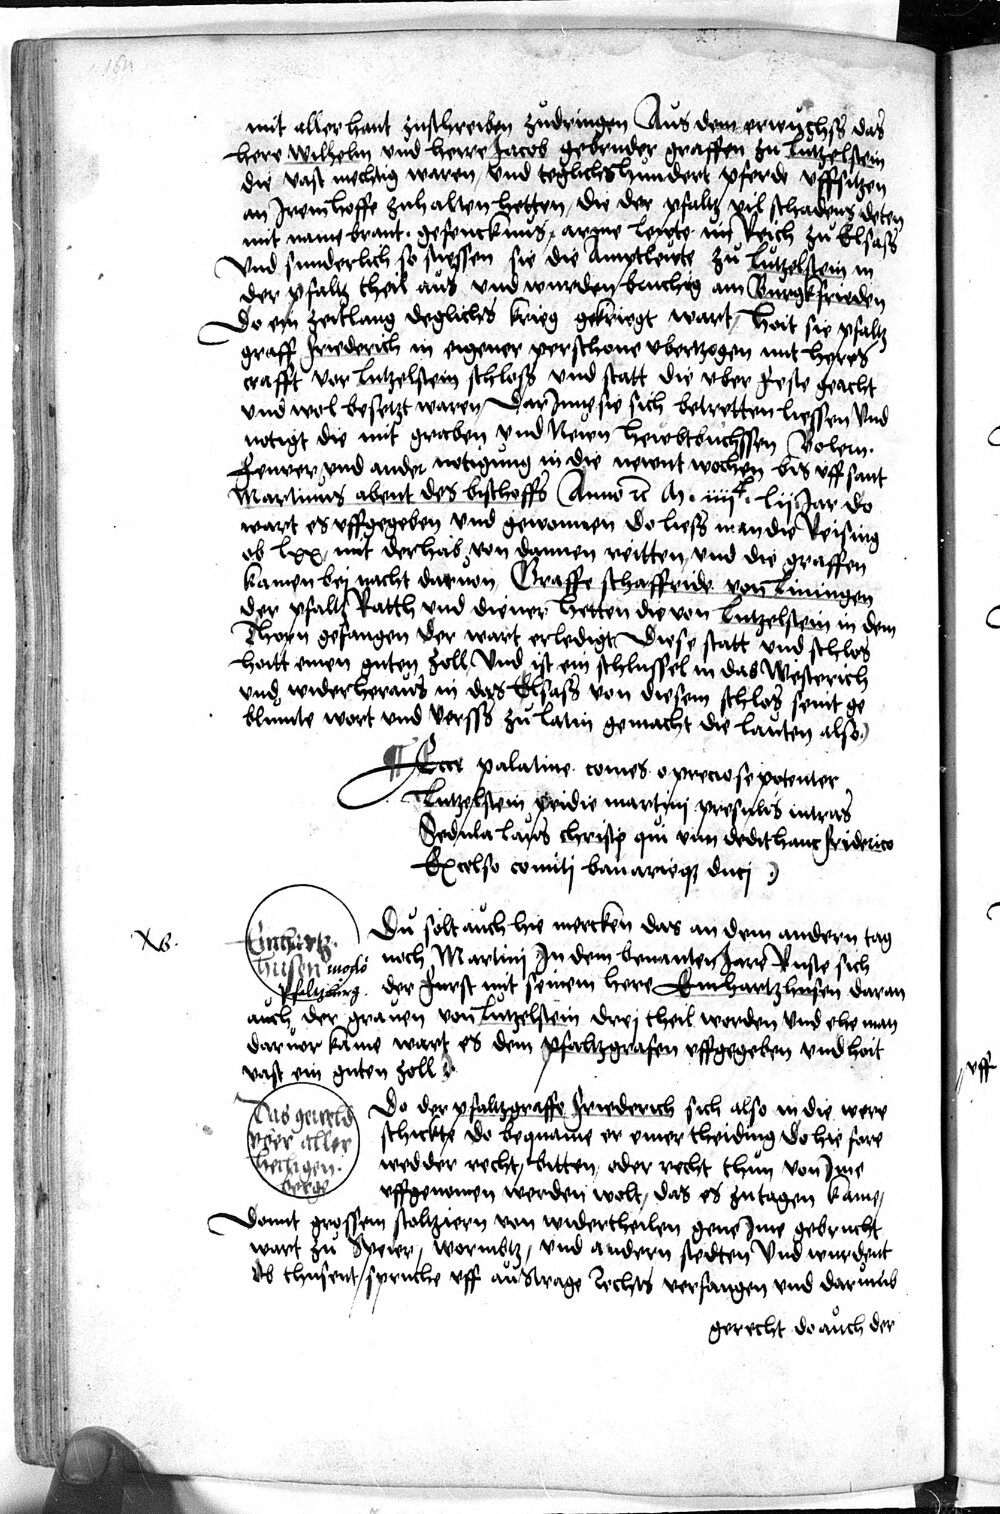 mit allerhant zuschreiben zudringen Aus dem erwuchss das
here wilhelm und herre Jacob gebruder graffen zu Lutzelstein
die vast mechtig waren, und teglichs hundert pferde uffsitzen
an Irem hoffe zuhalten hetten, die der pfaltz vil schadens deten
mit name brant. gefencknus, arme leute im Reich zu Elsass
Und sunderlich so stiessen sie die Amptleute zu Lutzelstein in
der pfaltz theil aus und wurden bruchig am Burgkfrieden
Do ein zeitlang deglichs krieg gekriegt wart, hoit sie pfaltz
graff friederich in eigener perschone ubertzogen mit heres
crafft vor Lutzelstein schloss und statt die uber feste geacht
und wol besetzt waren, Dar Inne sie sich betretten liessen Und
notigt die mit graben und Neuen hewbtbuchssen Bolern.
fewer, und ander notigung in die newnt wochen bis uff sant
Martinus abent des bischoffs Anno M. iiiic. lii Jar do
wart es uffgegeben und gewonnen do liess man die Reising
ob lxx, mit der hab von dannen reitten, und die graffen
kamen bej nacht darvon Graffe schaffride von Liningen
der pfaltz Ratth und diener hetten die von Lutzelstein in dem
Thorn gefangen der wart erledigt Diese statt und schlos
hatt einen guten zoll, Und ist ein schlussel in das Westerich
und widerheraus in das Elsass von diesem schlos seint ge
blumte wort und verss zu latin gemacht die lauten also
Ecce palatine comes o preciose potenter
Lutzelstein pridie martinj presulis intras
Sedula laus christo qui vim dedit hanc friderico
Excelso comitj bavarieqz ducj
XV.
Einhartz-
husen modo
Pfaltzburg.
Du solt auch hie mercken das an dem andern tag
noch Martinj In dem benanten Jare Ruste sich
der furst mit seinem here Einhartzhusen daran
auch der graven von Lutzelstein drej theil worden und ehe man
darvor kame wart es dem pfaltzgrafen uffgegeben und hoit
vast ein guten zoll
uber aller
heiligen.
berge
Do der pfaltzgraffe friederich sich also in die were
schickte do bequame er einer theiding do hie fore
wedder recht, bitten, oder recht thun von Ime
uffgenomen werden wolt, das es zutagen kame,
Domit grossem stoltziern von widertheilen gene Ime gebrucht
wart zu Speier, wormbtz, und andern stedten Und wurdent
ob thusent, spruche uff austrage Rechts verfangen und darumb
gerecht do auch der
uff